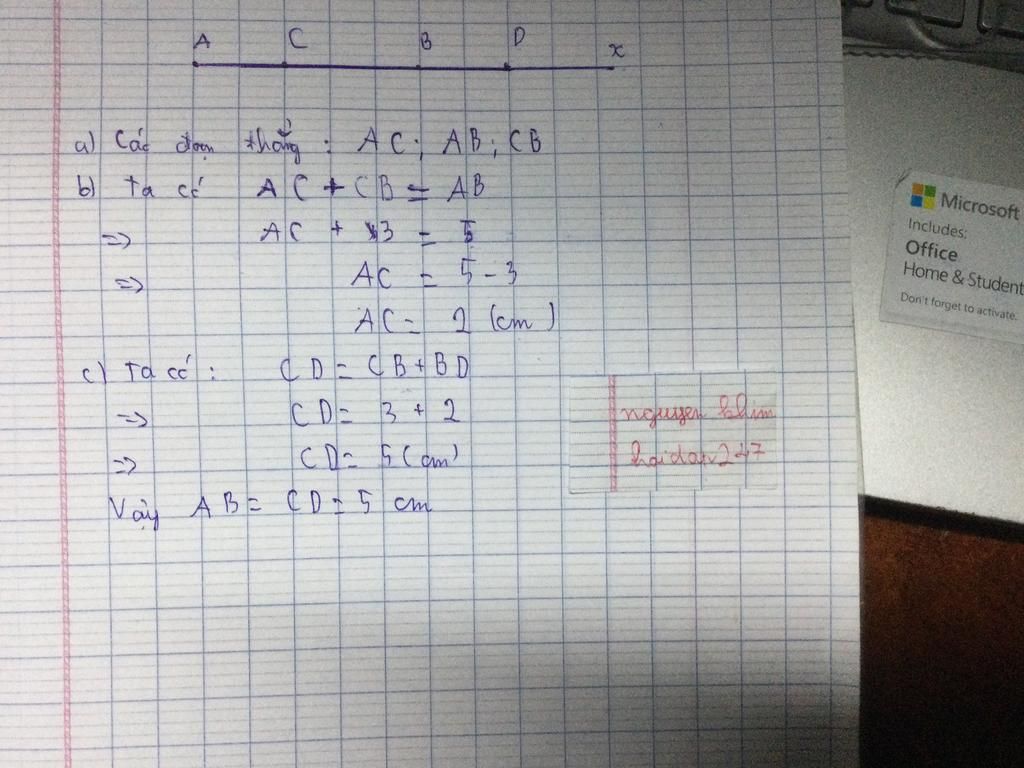 A C B D x
a) Các đoạn thẳng : AC ; AB ; CB
b) Ta có AC + CB = AB
=> AC + 3 = 5
=> AC = 5 - 3
AC = 2 (cm)
c) Ta có : CD = CB + BD
=> CD = 3 + 2
=> CD = 5 (cm)
Vậy AB = CD = 5 cm
nguyen khim
hoidap247
Microsoft
Includes:
Office
Home & Student
Don't forget to activate.